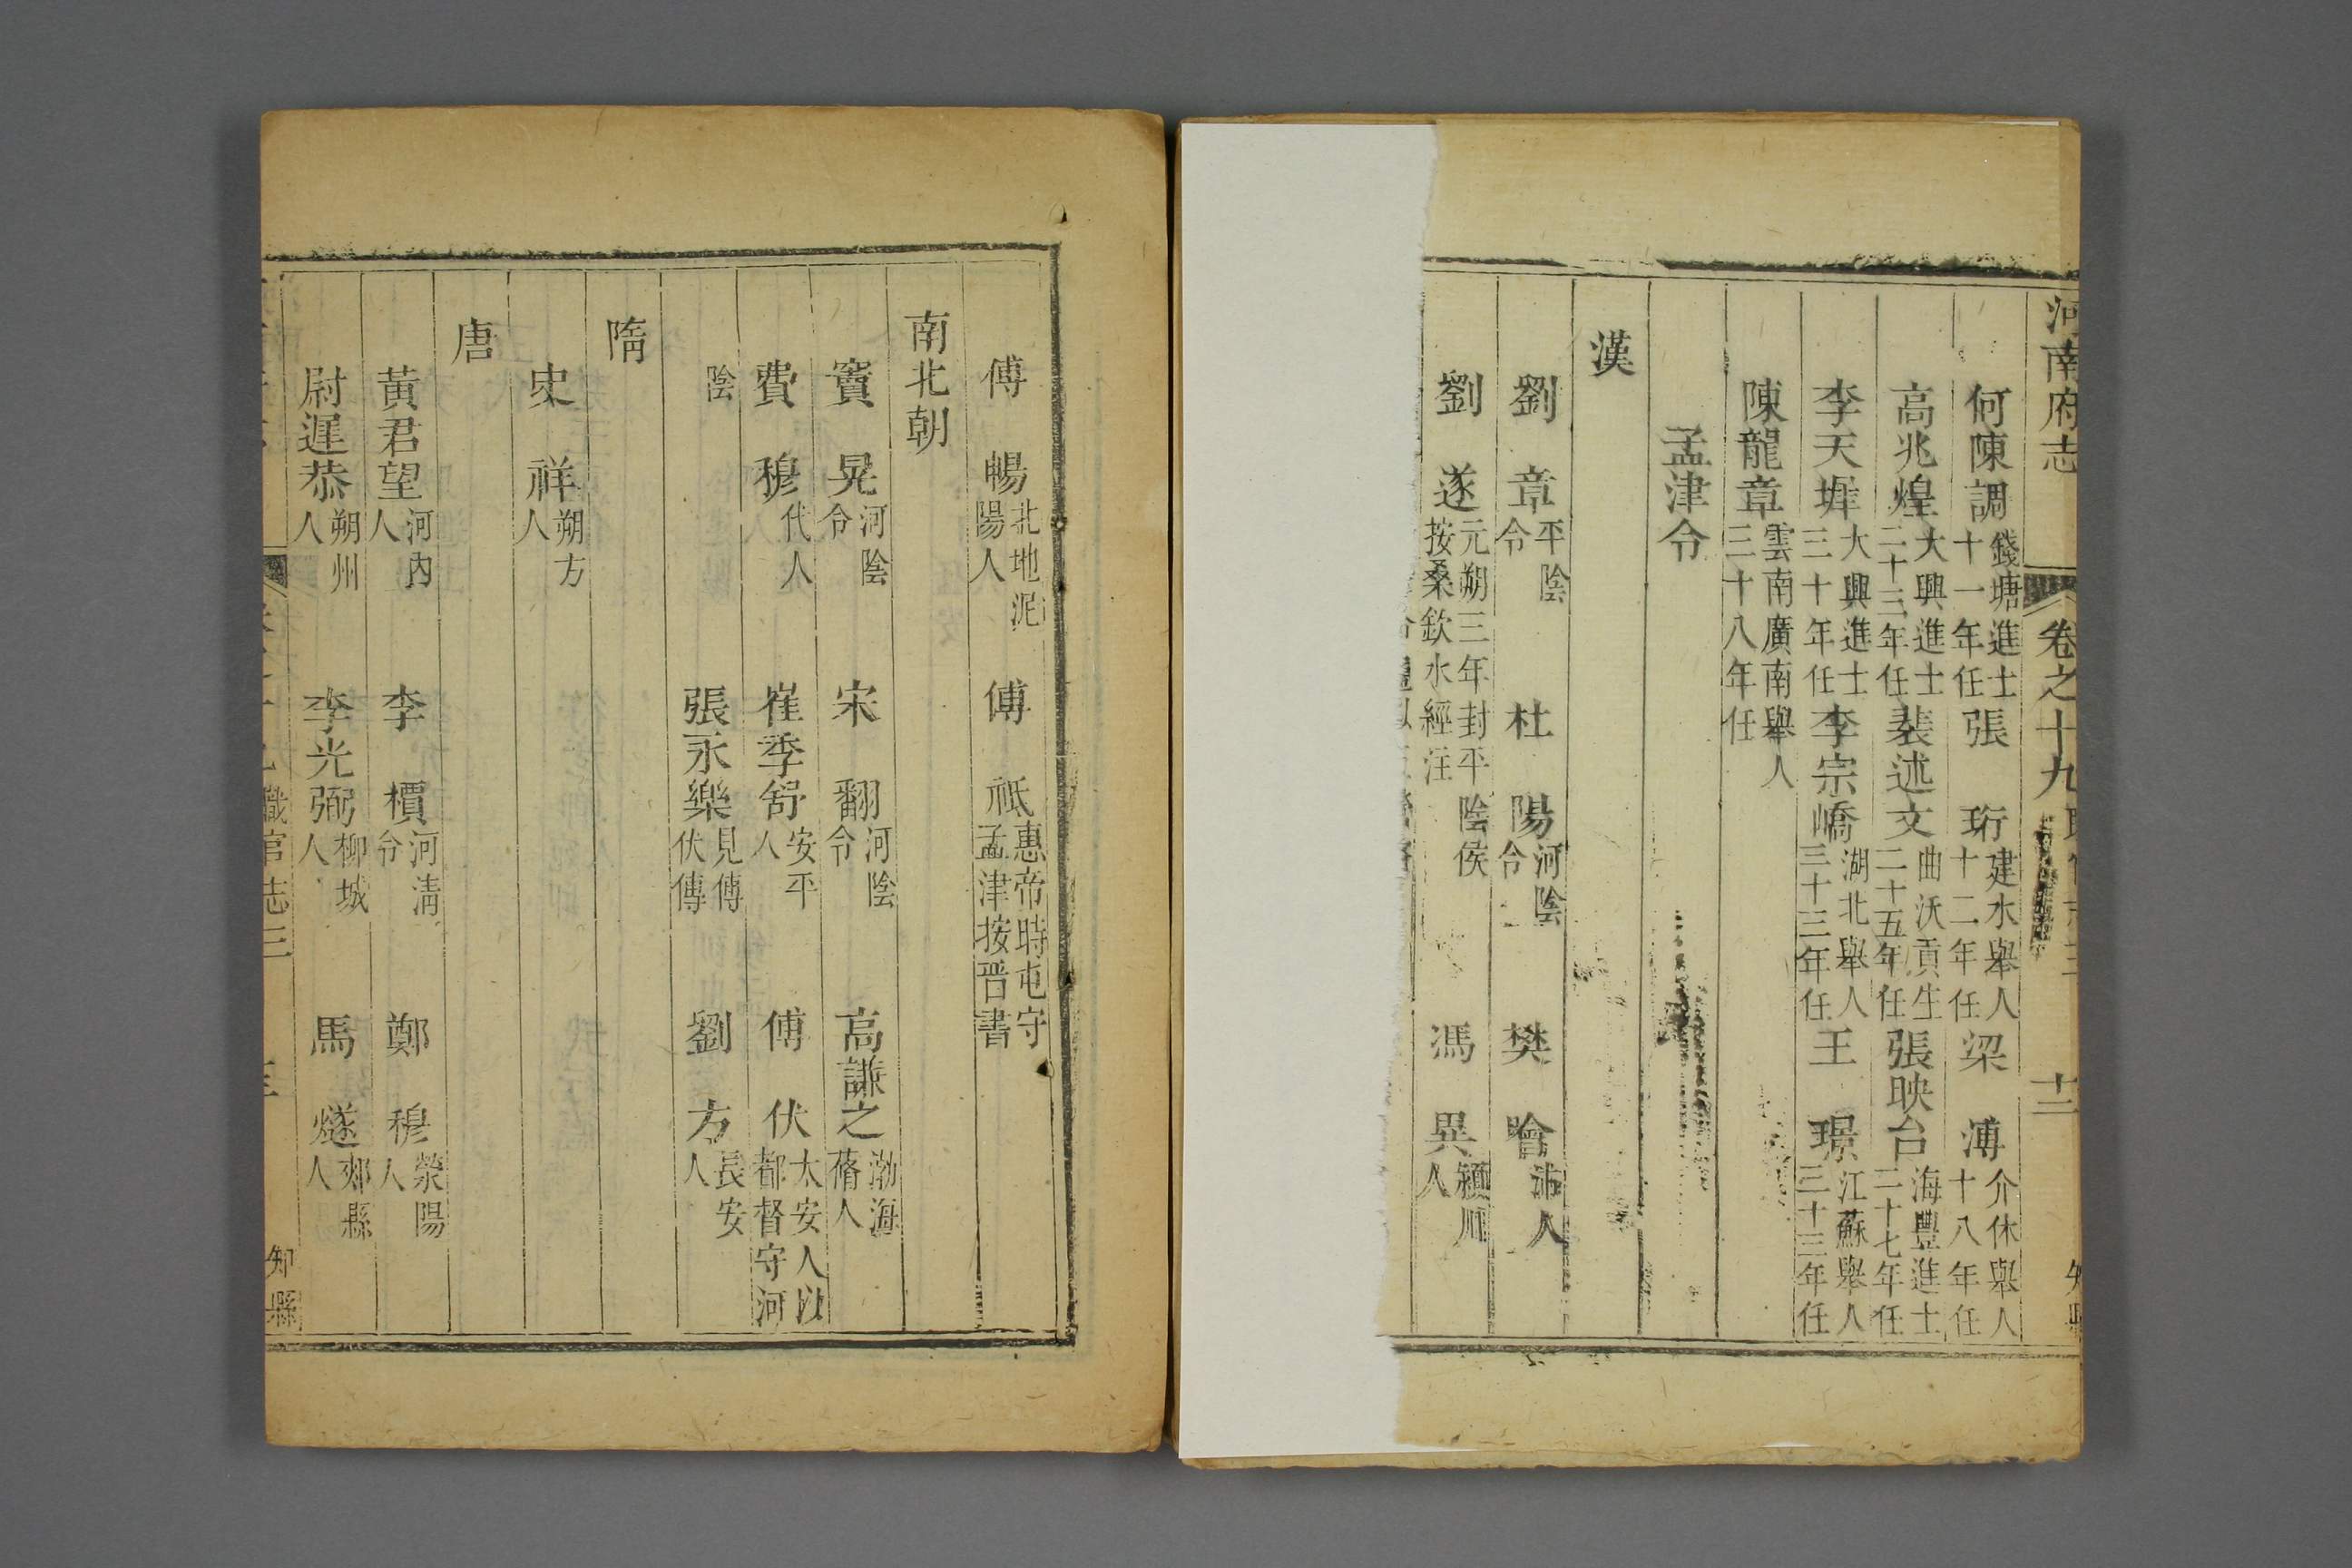 河南府志 卷之十九 十二
何陳調 錢塘進士十一年任 張珩 建水舉人十二年任 梁溥 介休舉人十八年任
高兆煌 大興進士二十三年任 裴述文 曲沃貢生二十五年任 張映台 海豐進士二十七年任
李天墀 大興進士三十年任 李宗嶠 湖北舉人三十三年任 王璟 江蘇舉人三十三年任
陳龍章 雲南廣南舉人三十八年任
孟津令
漢
劉章 平陰令 杜陽 河陰令 樊噲 沛人
劉遂 元朔三年封平陰侯按桑欽水經注 馮異 潁川人
傅暢 北地泥陽人 傅祗 惠帝時屯守孟津按晉書
南北朝
竇晃 河陰令 宋翻 河陰令 高謙之 渤海蓨人
費穆 代人 崔季舒 安平人 傅伏 太安人以都督守河
陰 張永樂 見傅伏傳 劉方 長安人
隋
史祥 朔方人
唐
黃君望 河內人 李檟 河清令 鄭穆 滎陽人
尉遲恭 朔州人 李光弼 柳城人 馬燧 郟縣人
職官志三 知縣